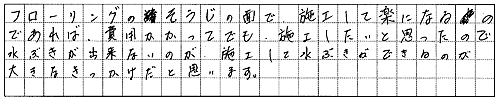 フローリングのそうじの面で、施工して楽になるの
であれば、費用かかってでも、施工したいと思ったので
水ぶきが出来ないのが、施工して水ぶきができるのが
大きなきっかけだと思います。